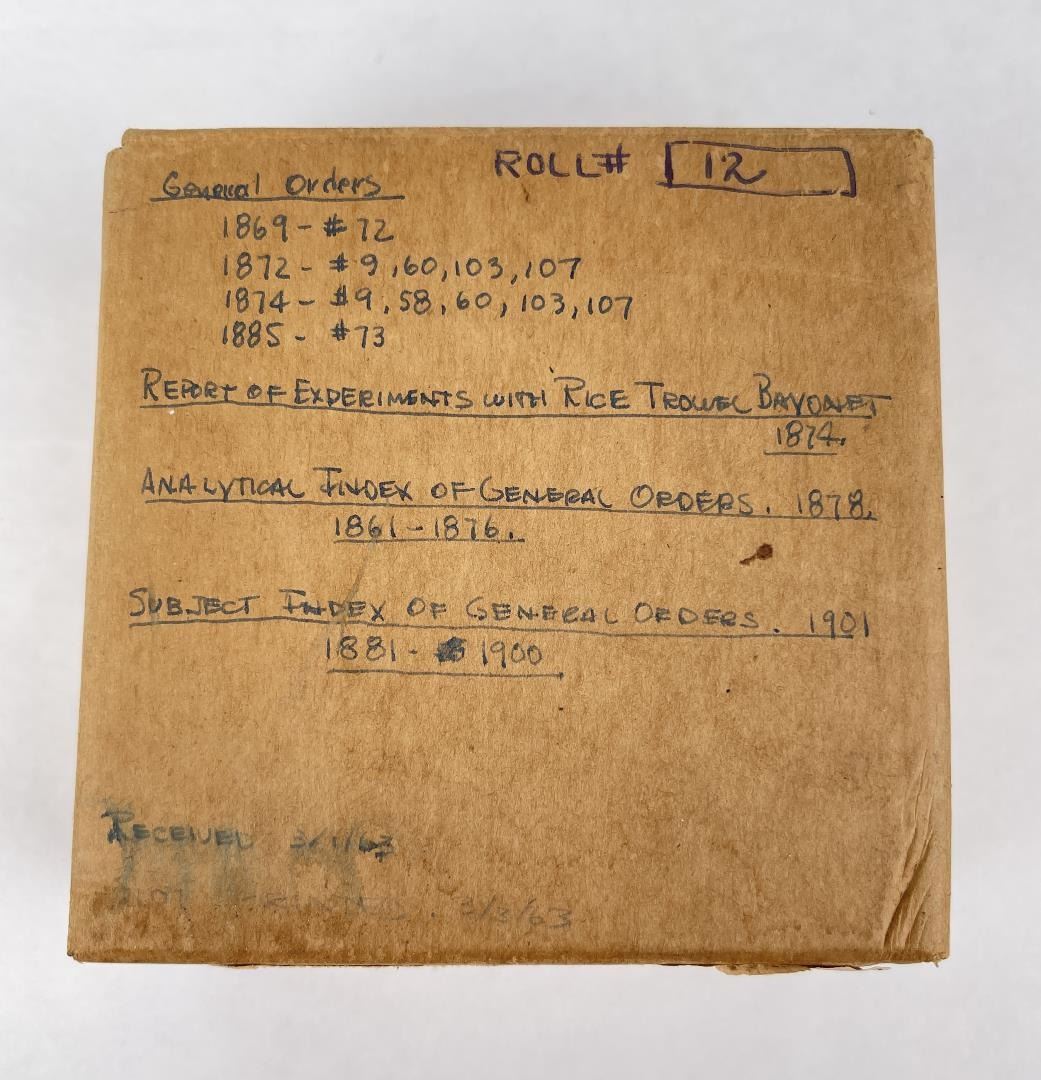 ROLL# 12
General Orders
1869 - # 72
1872 - # 9, 60, 103, 107
1874 - # 9, 58, 60, 103, 107
1885 - # 73
REPORT OF EXPERIMENTS WITH RICE TROWEL BAYONET
1874.
ANALYTICAL INDEX OF GENERAL ORDERS. 1878.
1861 - 1876.
SUBJECT INDEX OF GENERAL ORDERS. 1901
1881 - 1900
RECEIVED 3/1/63
3/3/63